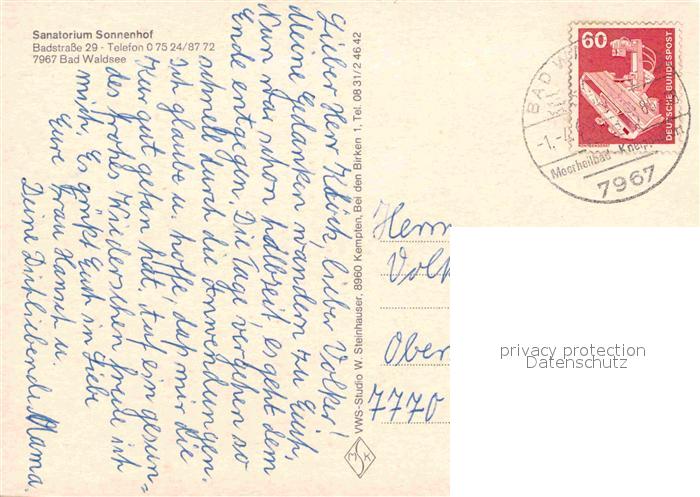 Sanatorium Sonnenhof
Badstraße 29 - Telefon 0 75 24/87 72
7967 Bad Waldsee
Lieber Herr Klöck, lieber Volker!
Meine Gedanken wandern zu Euch,
Nun war schon Halbzeit, es geht dem
Ende entgegen. Die Tage vergehen so
schnell durch die Anwendungen.
Ich glaube u. hoffe, daß mir die
Kur gut getan hat. Auf ein gesun=
des frohes Wiedersehen freue ich
mich. Es grüßt Euch in Liebe
Eure Frau Hansch u.
Deine Dichliebende Mama.
VWS-Studio W. Steinhauser, 8960 Kempten, Bei den Birken 1, Tel. 08 31/2 46 42
MSK
60
DEUTSCHE BUNDESPOST
BAD
-1.-
Moorheilbad - Kneipp
7967
Herrn
Volk
Ober
7770
privacy protection
Datenschutz